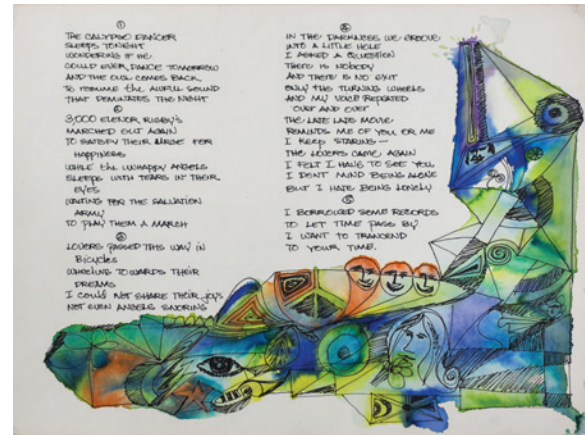 ①
THE CALYPSO DANCER
SLEEPS TONIGHT
WONDERING IF HE
COULD EVER DANCE TOMORROW
AND THE OWL COMES BACK
TO RESUME THE AWFUL SOUND
THAT DOMINATES THE NIGHT
②
3,000 ELENOR RIGBY'S
MARCHED OUT AGAIN
TO SATISFY THEIR URGE FOR
HAPPINESS
WHILE THE UNHAPPY ANGELS
SLEEPS WITH TEARS IN THEIR
EYES
WAITING FOR THE SALVATION
ARMY
TO PLAY THEM A MARCH
③
LOVERS PASSED THIS WAY IN
BICYCLES
WHEELING TOWARDS THEIR
DREAMS
I COULD NOT SHARE THEIR JOYS
NOT EVEN ANGELS SNORING
④
IN THE DARKNESS WE GROOVE
INTO A LITTLE HOLE
I ASKED A QUESTION
THERE IS NOBODY
AND THERE IS NO EXIT
ONLY THE TURNING WHEELS
AND MY VOICE REPEATED
OVER AND OVER
THE LATE LATE MOVIE
REMINDS ME OF YOU OR ME
I KEEP STARING —
THE LOVERS CAME AGAIN
I FELT I HAVE TO SEE YOU
I DON'T MIND BEING ALONE
BUT I HATE BEING LONELY
⑤
I BORROWED SOME RECORDS
TO LET TIME PASS BY
I WANT TO TRANCEND
TO YOUR TIME.